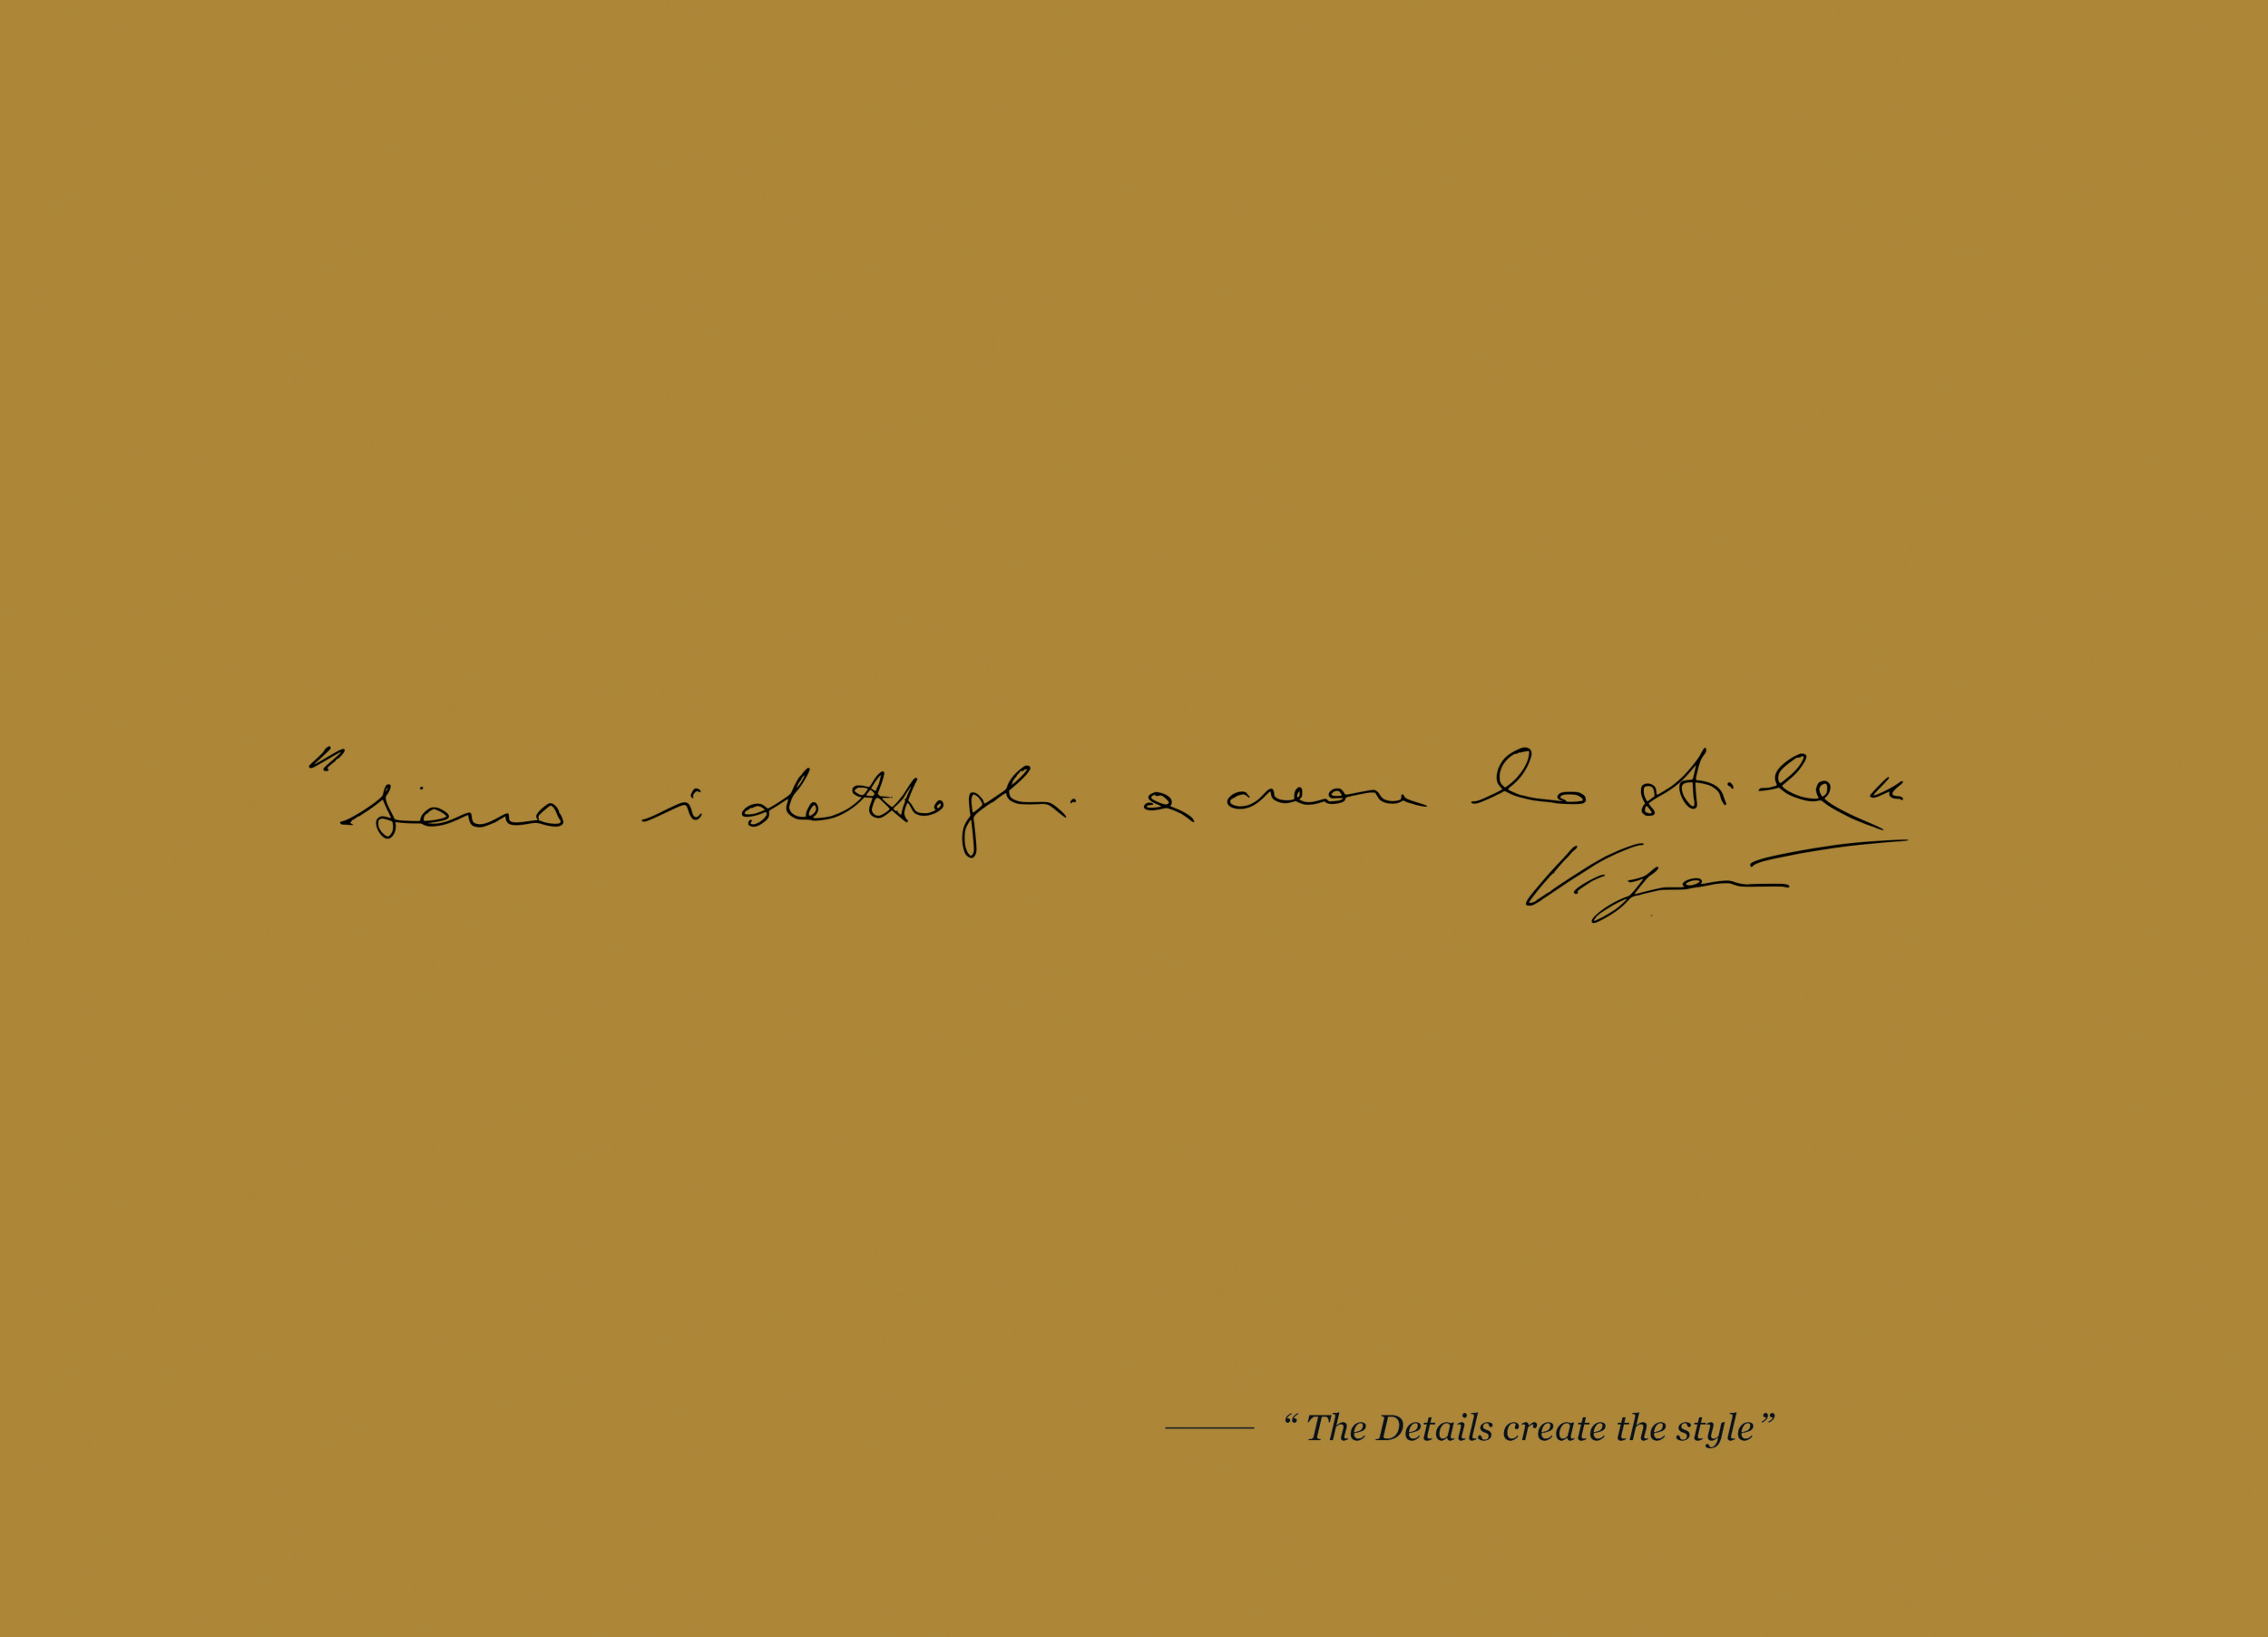 "sono i dettagli a creare lo stile"
“ The Details create the style”